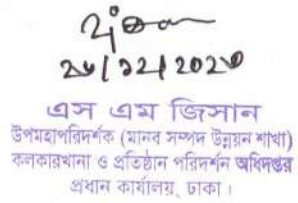 ২৮/১২/২০২৩
এস এম জিসান
উপমহাপরিদর্শক (মানব সম্পদ উন্নয়ন শাখা)
কলকারখানা ও প্রতিষ্ঠান পরিদর্শন অধিদপ্তর
প্রধান কার্যালয়, ঢাকা।